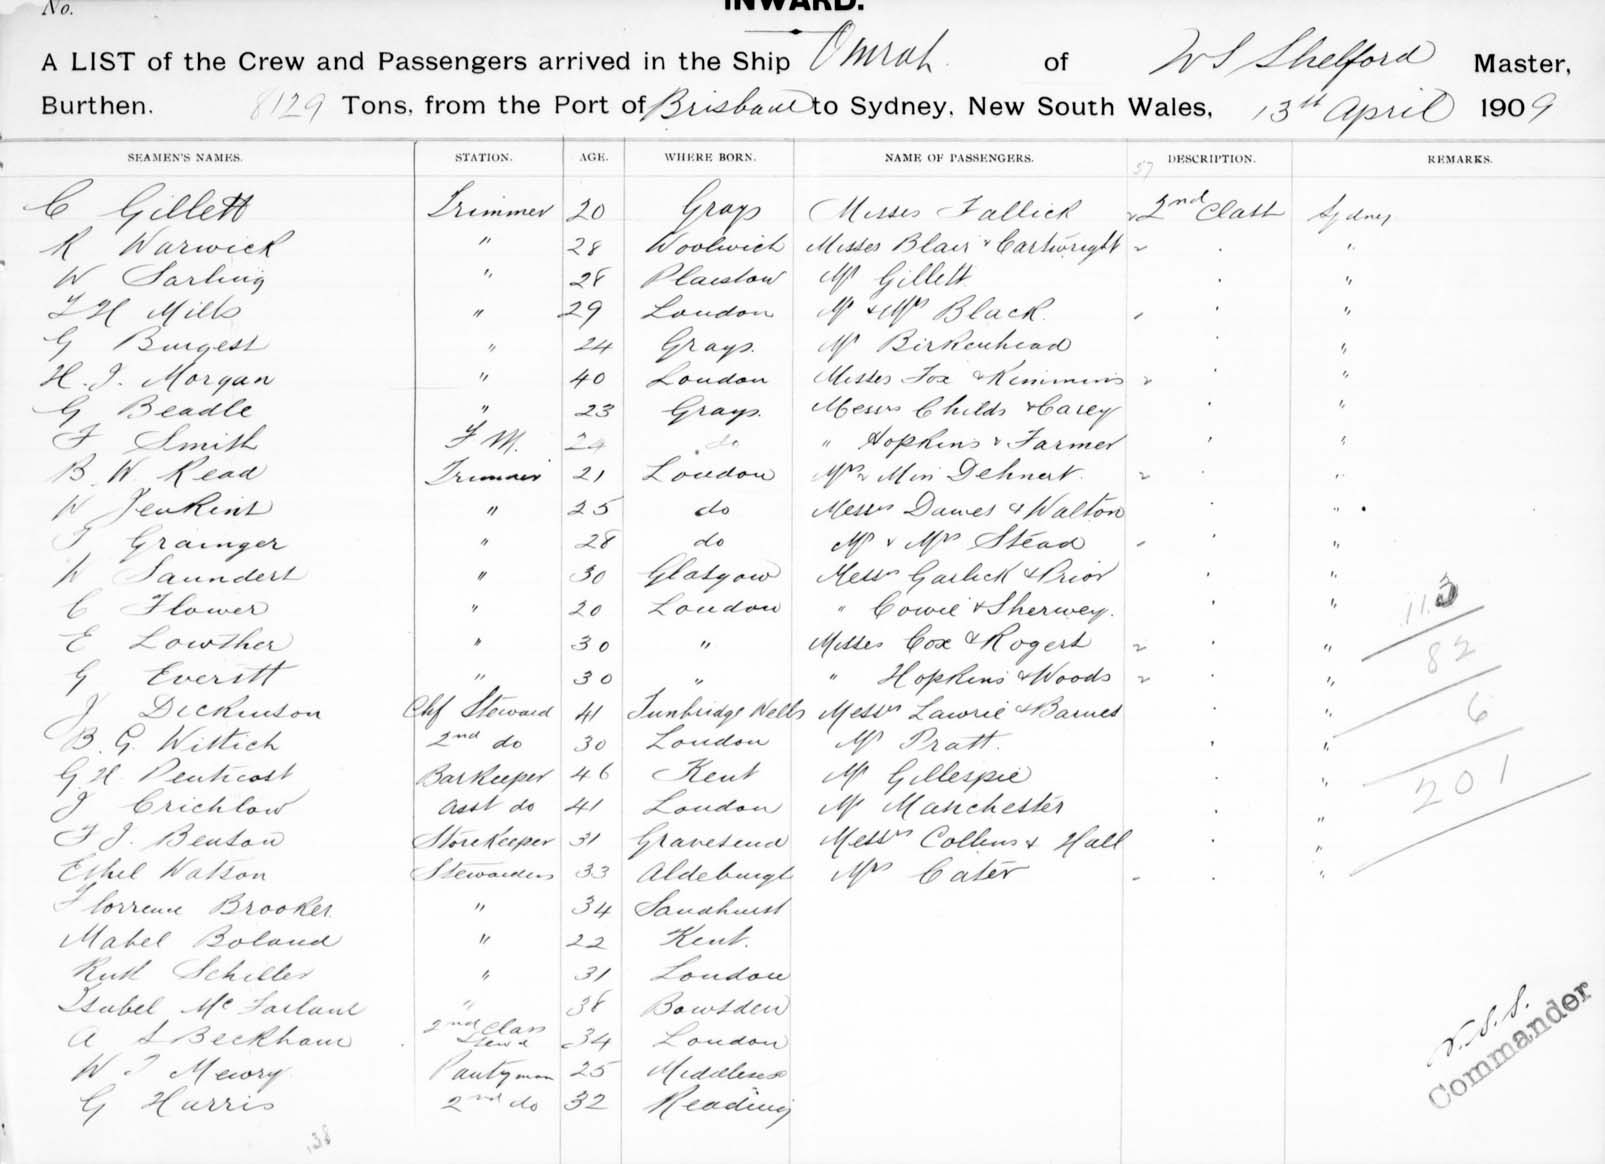 No.
INWARD.
A LIST of the Crew and Passengers arrived in the Ship Omrah of W S Shelford Master,
Burthen. 8129 Tons, from the Port of Brisbane to Sydney, New South Wales, 13th April 1909
SEAMEN'S NAMES. STATION. AGE. WHERE BORN. NAME OF PASSENGERS. 57 DESCRIPTION. REMARKS.
C Gillett Trimmer 20 Grays Misses Fallick 2nd Class Sydney
R Warwick " 28 Woolwich Misses Blair & Cartwright "
W Sarling " 28 Plaistow Mr Gillett "
F H Mills " 29 London Mr & Mrs Black "
G Burgess " 24 Grays. Mr Birkenhead "
H. J. Morgan " 40 London Misses Fox & Kimmins "
G Beadle " 23 Grays. Messrs Childs & Carey "
F Smith F M. 24 do " Hopkins & Farmer "
B. W. Read Trimmer 21 London Mrs & Miss Dehnert. "
W Jenkins " 25 do Messrs Dawes & Walton "
T Grainger " 28 do Mr & Mrs Stead "
W Saunders " 30 Glasgow Messrs Garlick & Prior "
C Flower " 20 London " Cowie & Sherwey. " 113
E Lowther " 30 " Misses Cox & Rogers " 82
G Everitt " 30 " " Hopkins & Woods "
J Dickinson Chf Steward 41 Tunbridge Wells Messrs Lawrie & Barnes " 6
B. G. Wittich 2nd do 30 London Mr Pratt. "
G. H. Penticost Barkeeper 46 Kent Mr Gillespie " 201
J Crichlow asst do 41 London Mr Manchester "
F J. Benson Storekeeper 31 Gravesend Messrs Collins & Hall "
Ethel Watson Stewardess 33 Aldeburgh Mrs Cater "
Florrence Brooker " 34 Sandhurst
Mabel Boland " 22 Kent.
Ruth Schiller " 31 London
Isabel McFarlane " 38 Bowsden
A S Beckham 2nd Class Stewd 34 London
W T Mewry Pantryman 25 Middlesex
G Harris 2nd do 32 Reading
138
W.S.S.
Commander